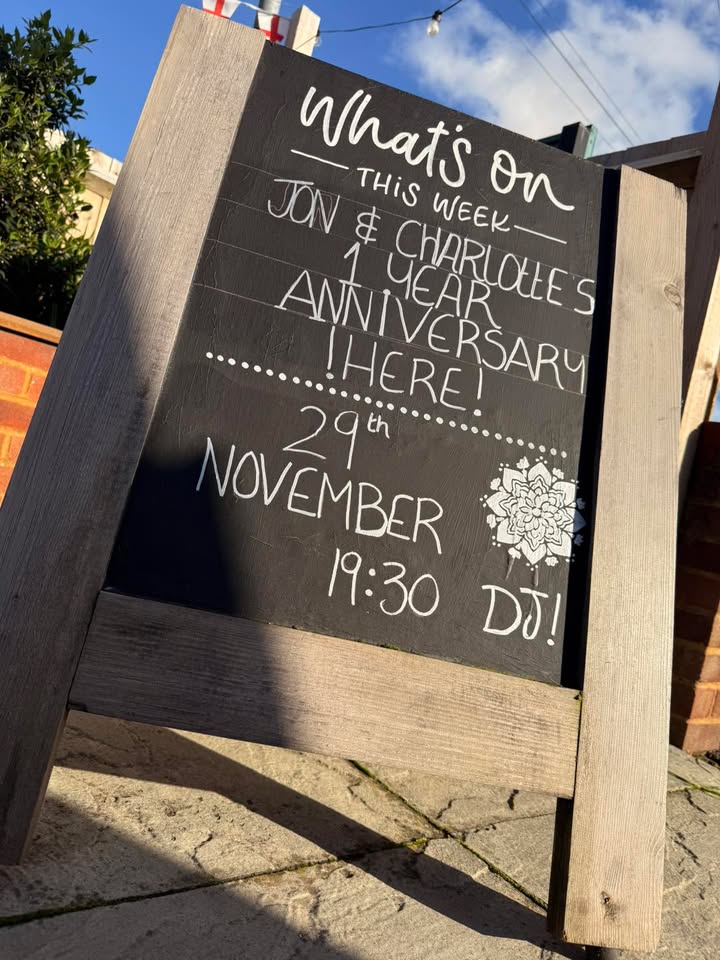 What's on
THiS WEEK
JON & CHARLOttE'S
1 YEAR
ANNIVERSARY
!HERE!
29th
NOVEMBER
19:30 DJ!